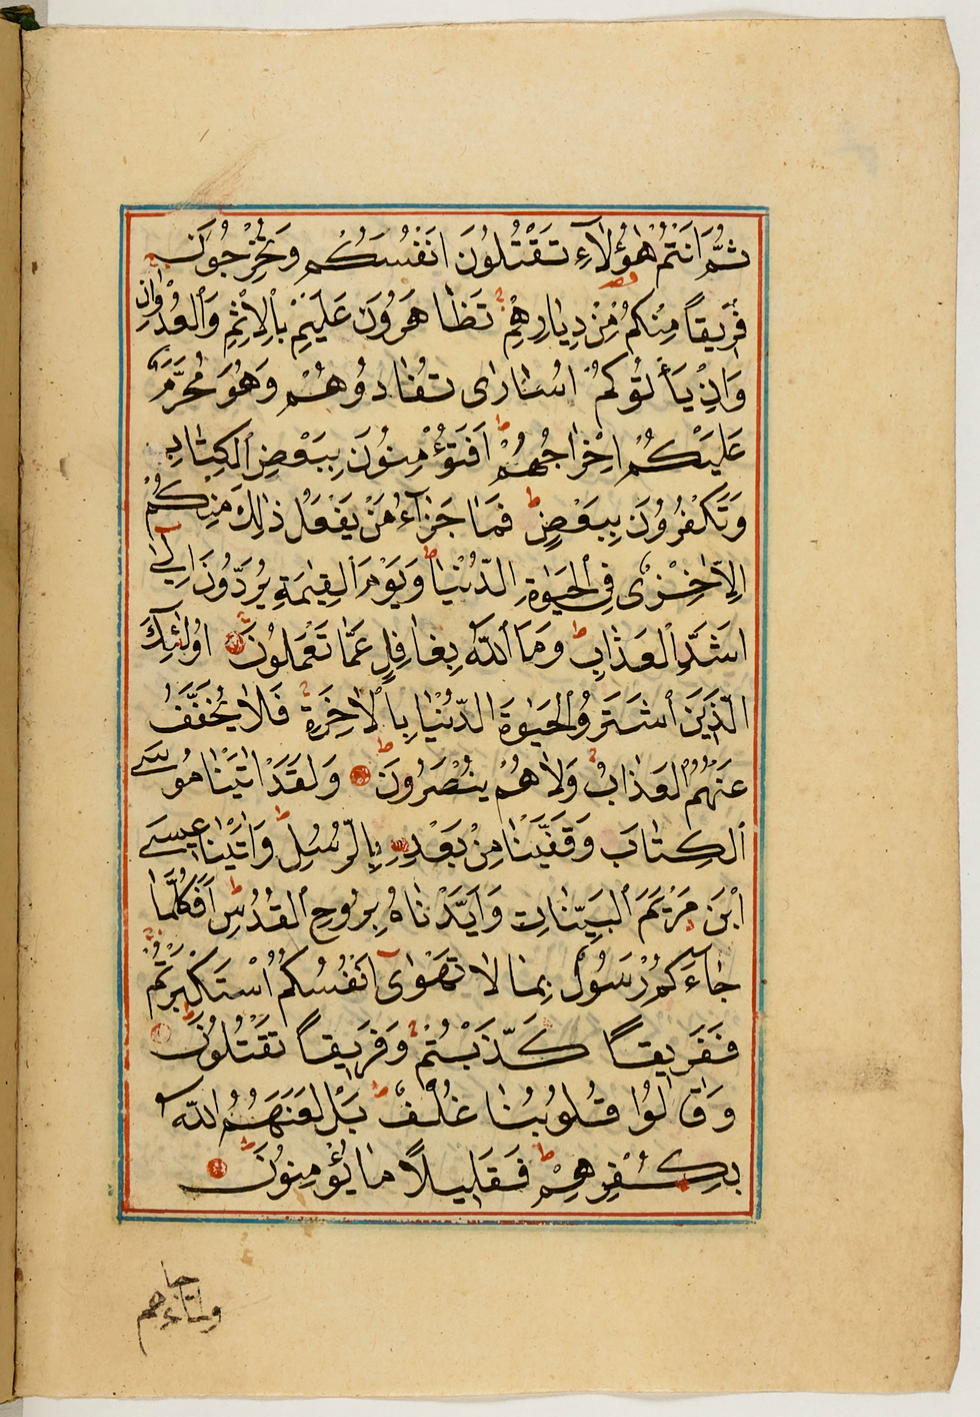 ثُمَّ اَنْتُمْ هٰؤُلَاءِ تَقْتُلُونَ اَنْفُسَكُمْ وَتُخْرِجُونَ
فَرِيقاً مِنْكُمْ مِنْ دِيَارِهِمْ تَظَاهَرُونَ عَلَيْهِمْ بِالْاِثْمِ وَالْعُدْوَانِ
وَاِنْ يَأْتُوكُمْ اُسَارٰى تُفَادُوهُمْ وَهُوَ مُحَرَّمٌ
عَلَيْكُمْ اِخْرَاجُهُمْ اَفَتُؤْمِنُونَ بِبَعْضِ الْكِتَابِ
وَتَكْفُرُونَ بِبَعْضٍ فَمَا جَزَاءُ مَنْ يَفْعَلُ ذٰلِكَ مِنْكُمْ
اِلَّا خِزْىٌ فِى الْحَيٰوةِ الدُّنْيَا وَيَوْمَ الْقِيٰمَةِ يُرَدُّونَ اِلٰى
اَشَدِّ الْعَذَابِ وَمَا اللّٰهُ بِغَافِلٍ عَمَّا تَعْمَلُونَ اُولٰئِكَ
الَّذِينَ اشْتَرَوُا الْحَيٰوةَ الدُّنْيَا بِالْاٰخِرَةِ فَلَا يُخَفَّفُ
عَنْهُمُ الْعَذَابُ وَلَا هُمْ يُنْصَرُونَ وَلَقَدْ اٰتَيْنَا مُوسَى
الْكِتَابَ وَقَفَّيْنَا مِنْ بَعْدِهِ بِالرُّسُلِ وَاٰتَيْنَا عِيسَى
ابْنَ مَرْيَمَ الْبَيِّنَاتِ وَاَيَّدْنَاهُ بِرُوحِ الْقُدُسِ اَفَكُلَّمَا
جَاءَكُمْ رَسُولٌ بِمَا لَا تَهْوٰى اَنْفُسُكُمُ اسْتَكْبَرْتُمْ
فَفَرِيقاً كَذَّبْتُمْ وَفَرِيقاً تَقْتُلُونَ
وَقَالُوا قُلُوبُنَا غُلْفٌ بَلْ لَعَنَهُمُ اللّٰهُ
بِكُفْرِهِمْ فَقَلِيلاً مَا يُؤْمِنُونَ
ولما جاءهم